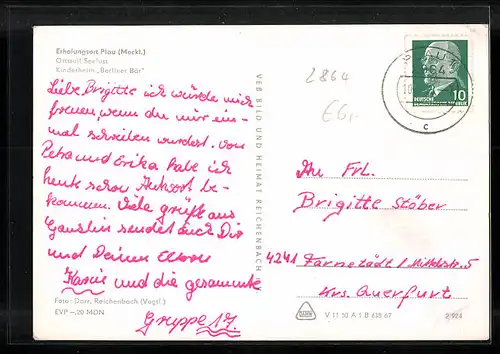 Erholungsort Plau (Meckl.)
Ortsteil Seelust
Kinderheim „Berliner Bär“
Liebe Brigitte ich würde mich
freuen, wenn du mir ein-
mal schreiben würdest. Von
Petra und Erika habe ich
heute schon Antwort be-
kommen. Viele grüße aus
sendet Euch Dir
und Deinen Eltern
Karin und die gesammte
Gruppe 17.
Foto: Darr, Reichenbach (Vogtl.)
EVP –,20 MDN
VEB BILD UND HEIMAT REICHENBACH
2864
€6,-
DEUTSCHE
10
c
An Frl.
Brigitte Stöber
4241 Farnstädt / Mittelstr. 5
Krs. Querfurt
V 11 50 A 1 B 638 67